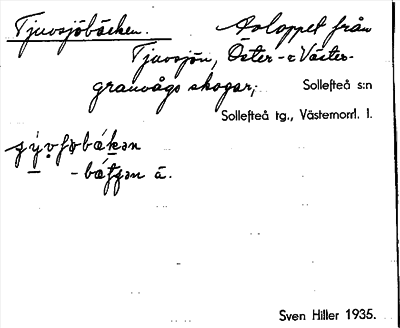 Tjuvsjöbäcken. Avloppet från
Tjuvsjön, Öster- o Väster-
granvågs skogar,
Sollefteå s:n
Sollefteå tg., Västernorrl. l.
-bäťʃən ä.
Sven Hiller 1935.